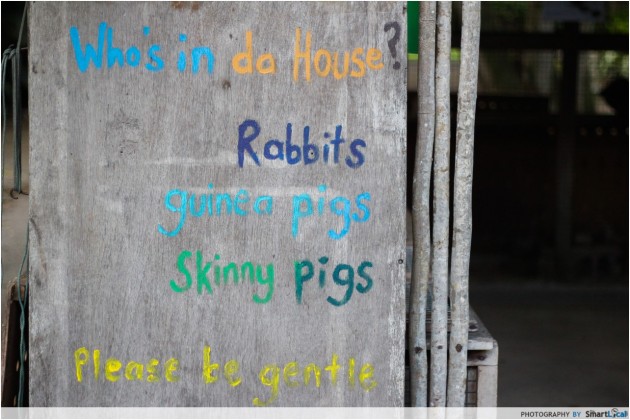 Who's in da House?
Rabbits
guinea pigs
Skinny pigs
Please be gentle
PHOTOGRAPHY BY SmartLocal